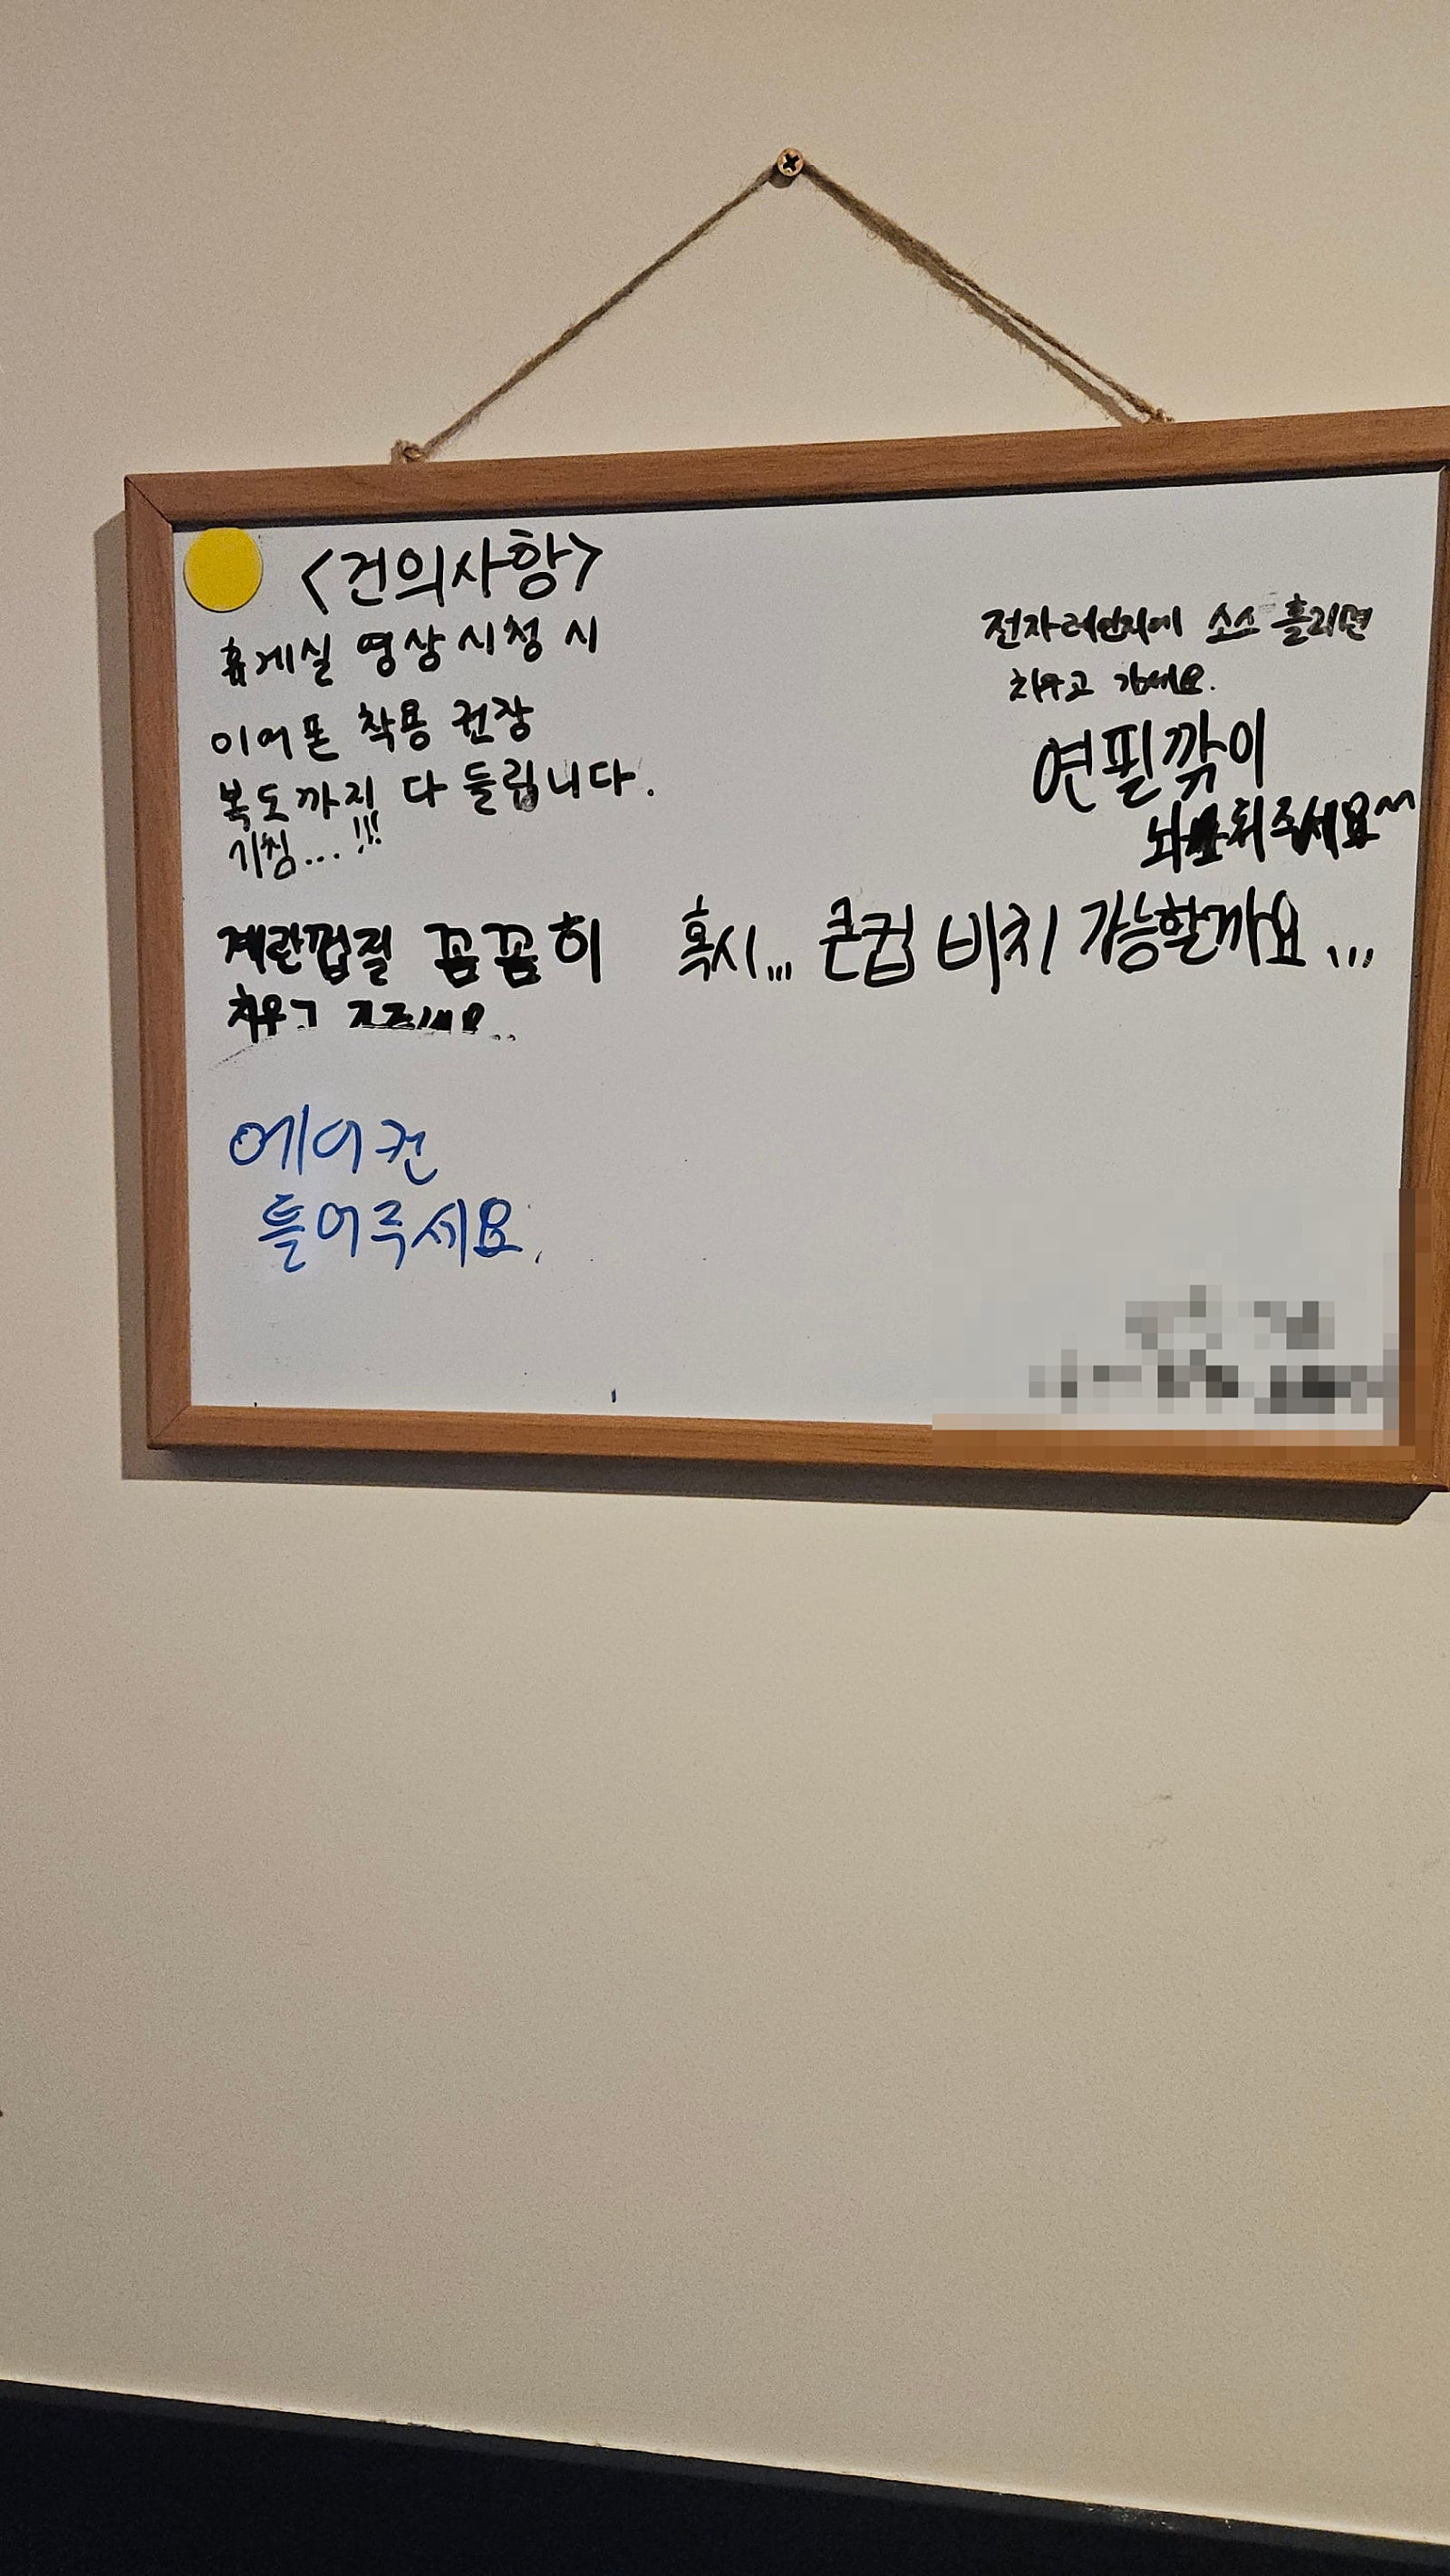 <건의사항>
휴게실 영상 시청 시
이어폰 착용 권장
복도까지 다 들립니다.
기침...!!!
계란껍질 꼼꼼히
치우고
에어컨
틀어주세요.
전자레인지에 소스 흘리면
치우고 가세요.
연필깎이
놔둬주세요^^
혹시... 큰컵 비치 가능할까요...